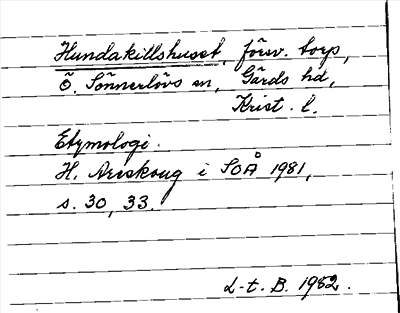 Hundakillshuset, försv. torp,
Ö. Sönnerslövs sn, Gärds hd,
Krist. l.
Etymologi.
H. Areskoug i SOÅ 1981,
s. 30, 33.
L-t. B. 1982.